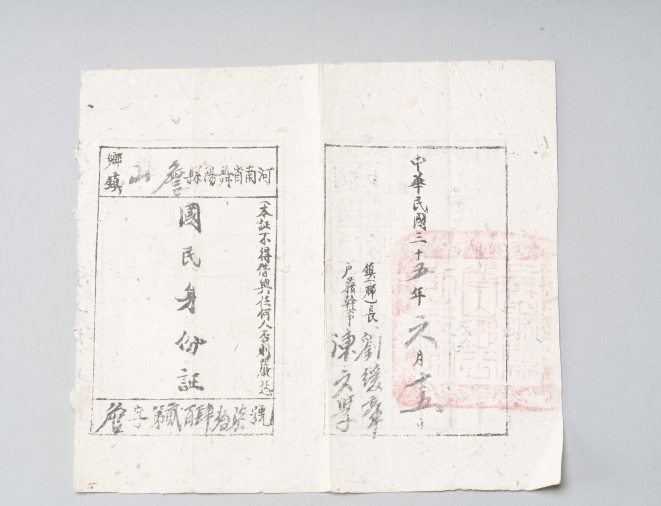 中華民國三十五年元月十五日
鎮(聯)長
戶籍幹事
劉
陳文學
河南省舞陽縣詹山
鄉鎮
(本証不得借與任何人否則嚴懲)
國民身份証
詹字第貳百肆拾柒號